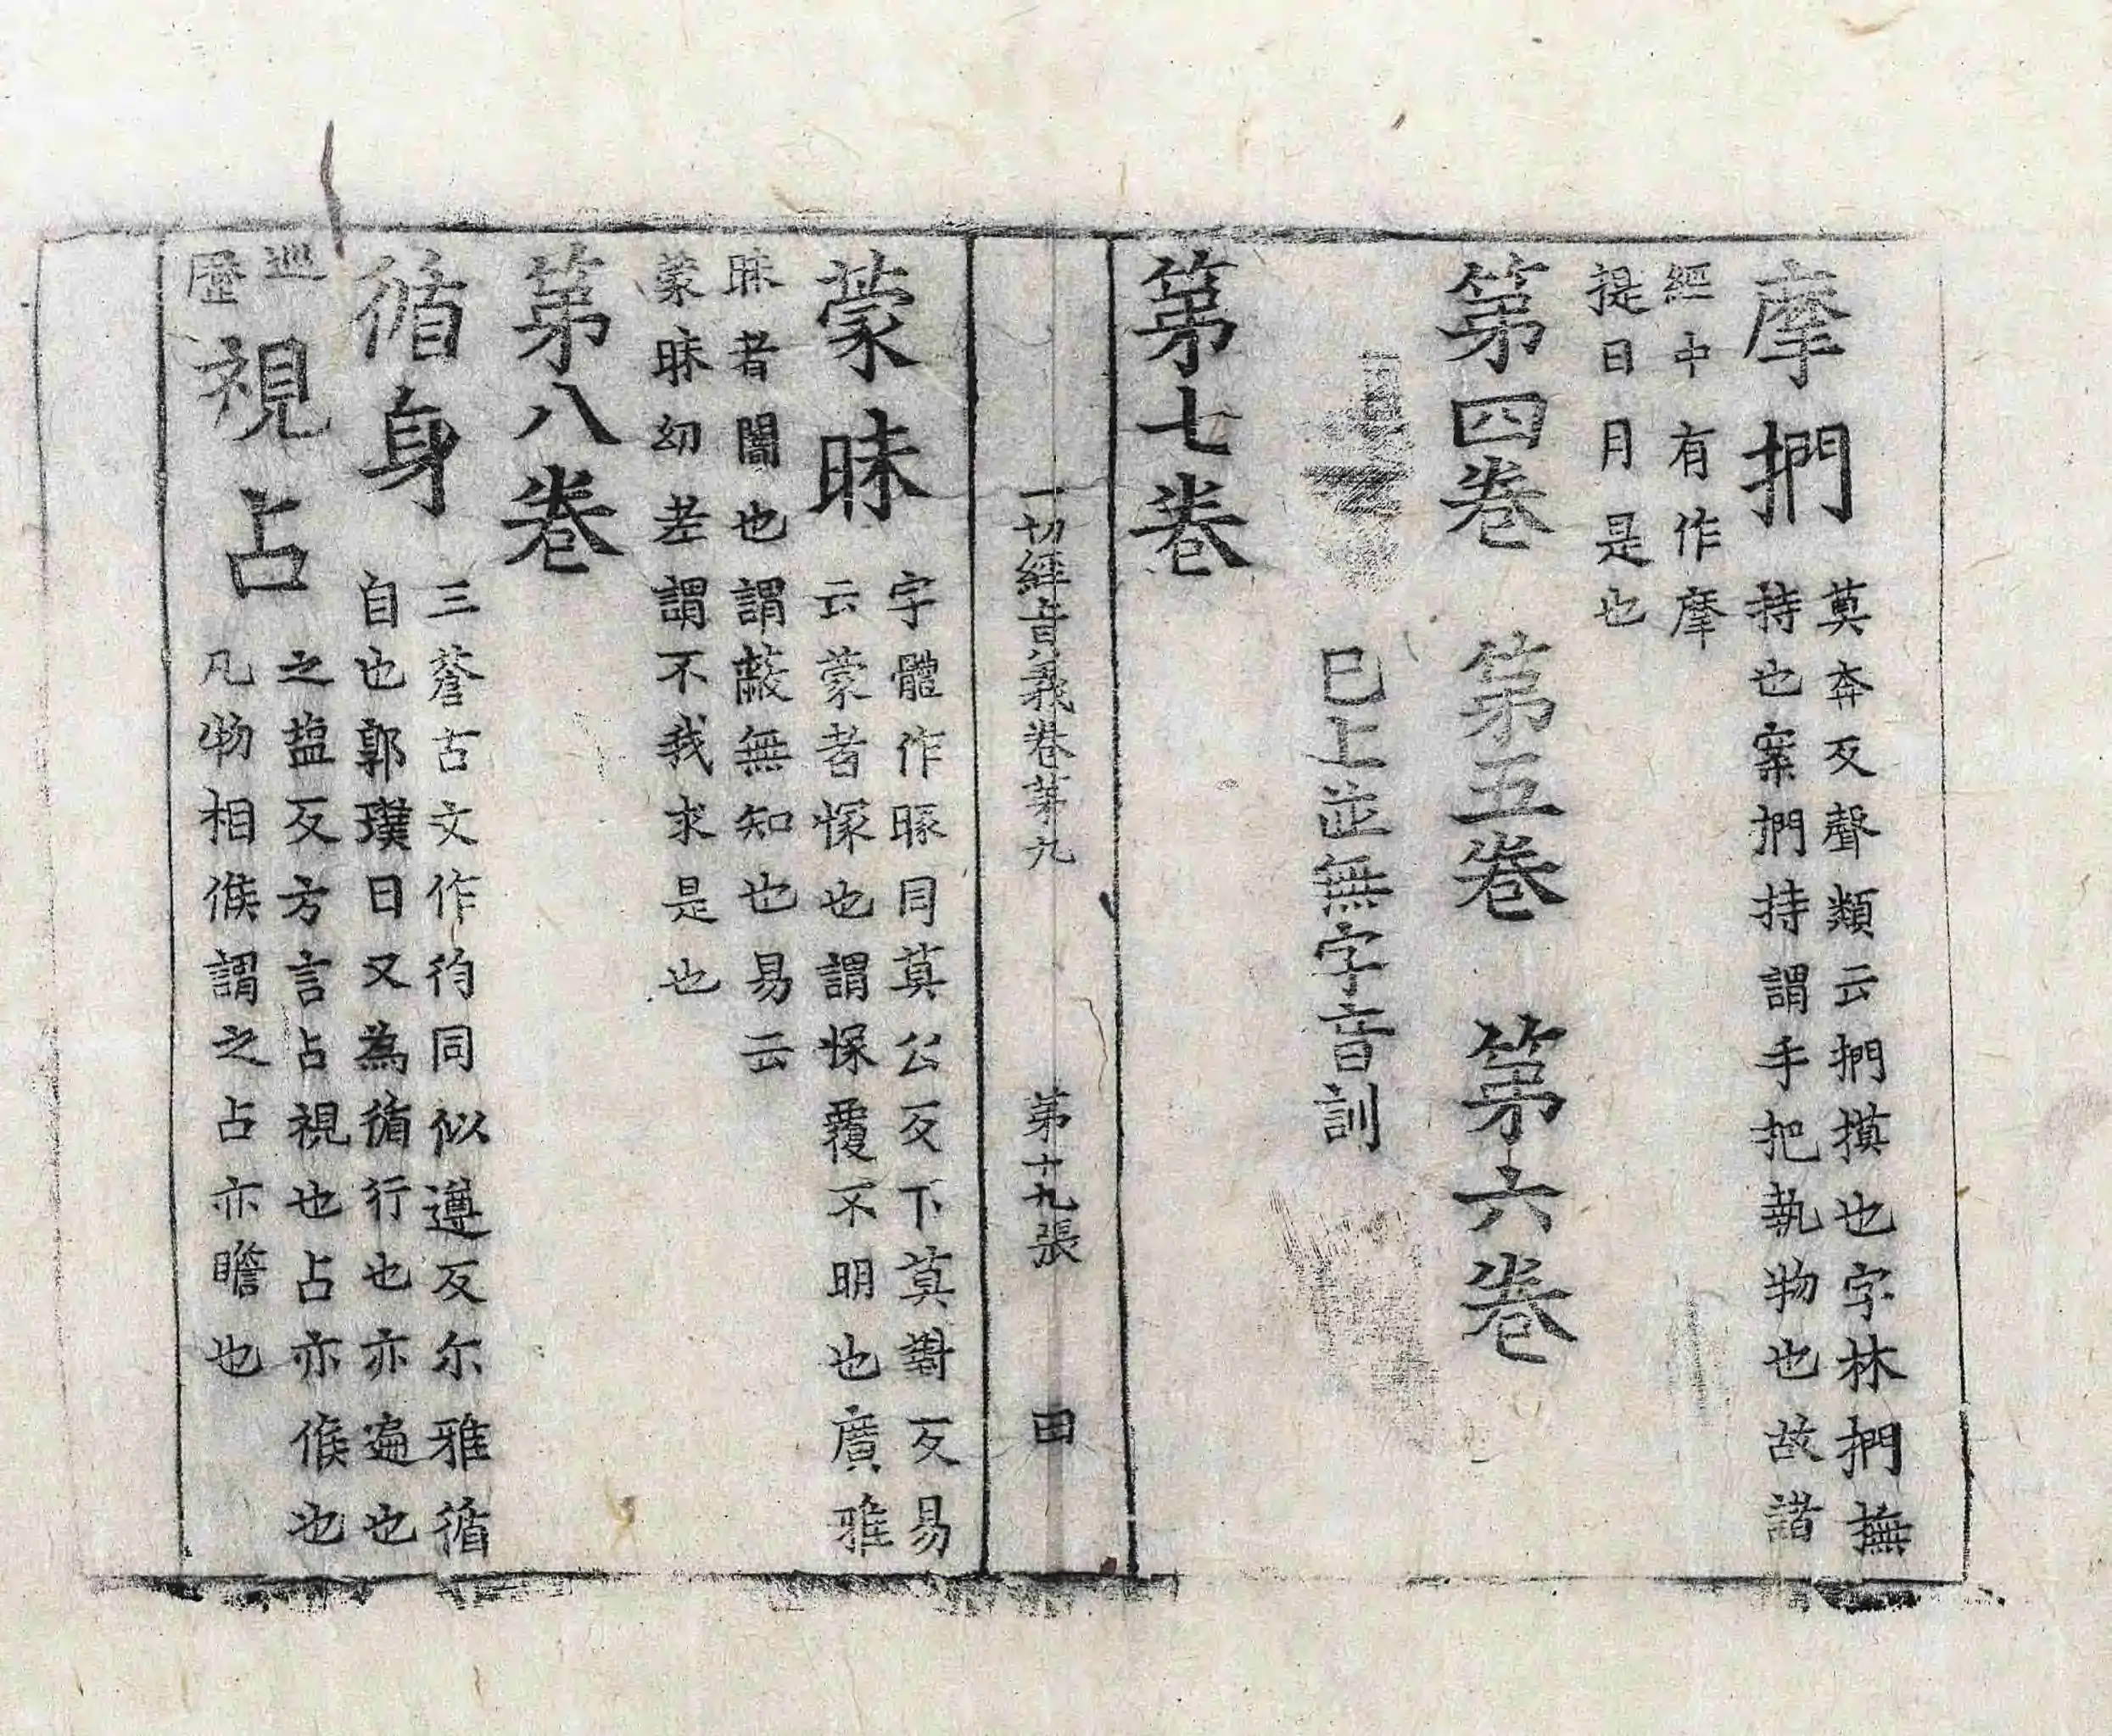 摩捫
莫奔反聲類云捫摸也字林捫撫
持也案捫持謂手把執物也故諸
經中有作摩
捉日月是也
第四卷　第五卷　第六卷
已上並無字音訓
第七卷
一切經音義卷第九　第十九張　田
蒙昧
字體作䁅同莫公反下莫對反易
云蒙者懞也謂懞覆不明也廣雅
昧者闇也謂蔽無知也易云
蒙昧幼老謂不我求是也
第八卷
循身
三蒼古文作徇同似遵反尒雅循
自也郭璞曰又為循行也亦遍也
巡
歷
視占
之塩反方言占視也占亦候也
凡物相候謂之占亦瞻也